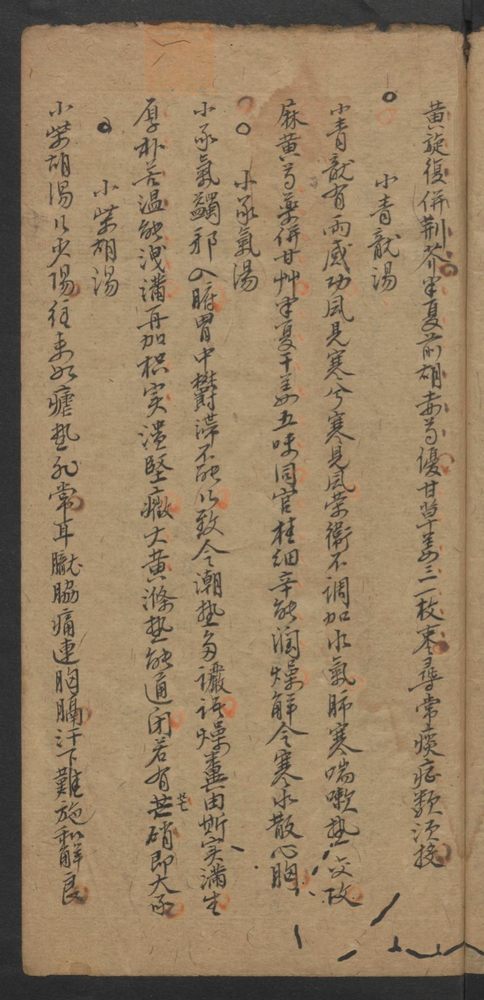 黄旋復併荆芥半夏前胡赤芍優甘草姜三一枚寒尋常痰症類須接
小青龍湯
小青龍有兩感功風見寒兮寒見風荣衛不調加水氣肺寒喘嗽熱交攻
麻黄芍薬併甘艸半夏干姜五味同官桂細辛能潤燥解令寒水散心胸
小承氣湯
小承氣蠲邪入腑胃中欝滞不能以致令潮熱多譫語燥糞由斯实滿生
厚朴苦温能洩滿再加枳实潰堅癥大黄滌熱能通闭若有芒硝即大承
芒
小柴胡湯
小柴胡湯以少陽往来如瘧熱非常耳聾脇痛連胸膈汗下難施和解良